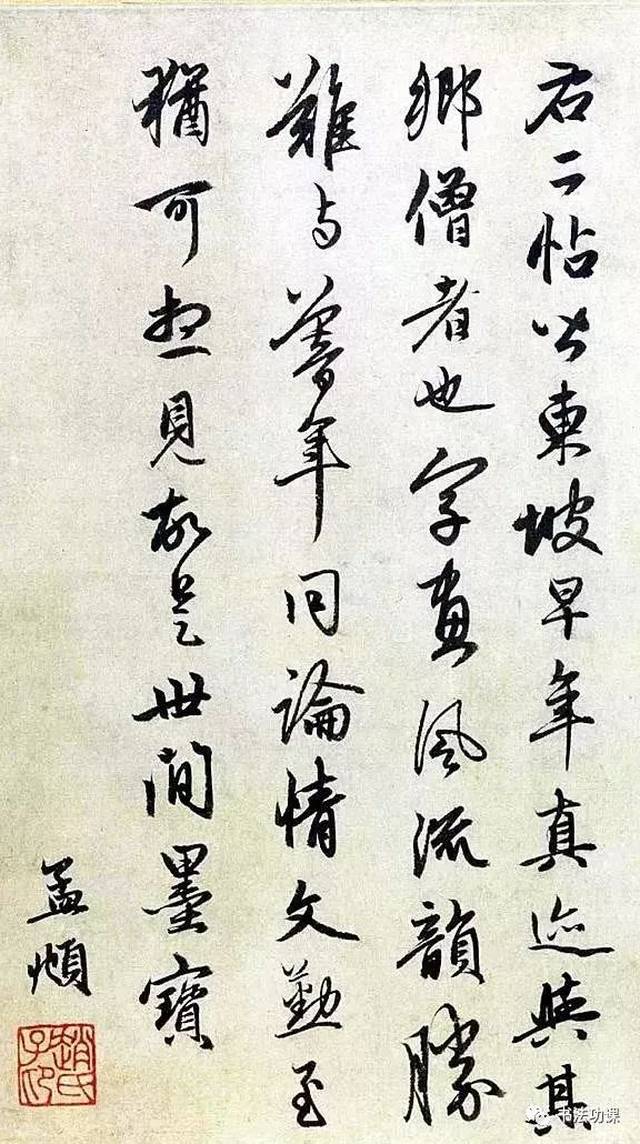 右二帖皆東坡早年真迹與其
鄉僧者也字畫風流韻勝
難与暮年同論情文勤至
猶可想見故是世間墨寶
孟頫
趙氏子昂
书法功课